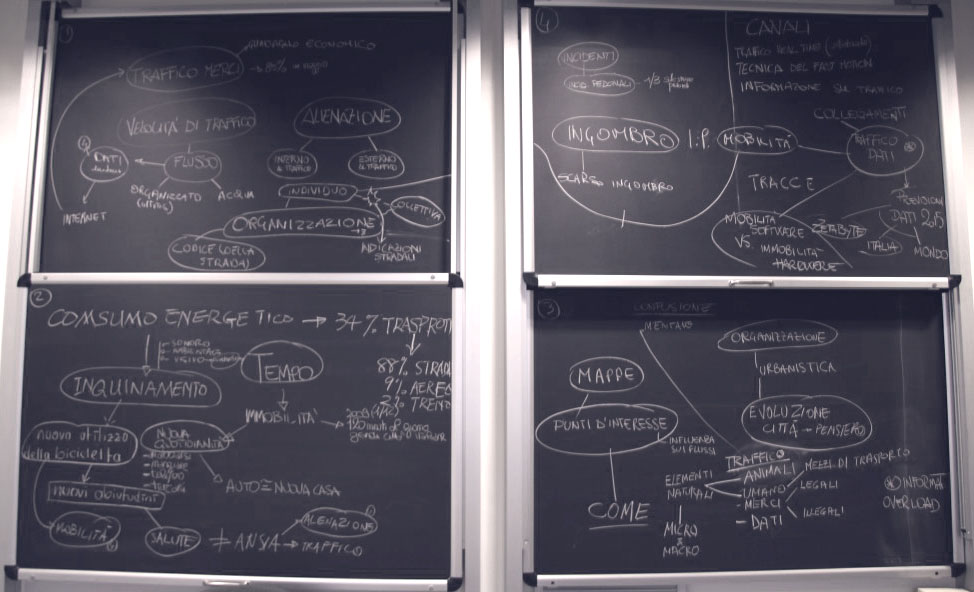 1
GUADAGNO ECONOMICO
TRAFFICO MERCI
VELOCITA' DI TRAFFICO
ALIENAZIONE
DATI
FLUSSO
INTERNO
AL TRAFFICO
ESTERNO
AL TRAFFICO
ORGANIZZATO
ACQUA
INTERNET
INDIVIDUO
COLLETTIVA
ORGANIZZAZIONE
CODICE DELLA
STRADA
STRADALI
2
COMSUMO ENERGETICO → 34% TRASPROTI
SONORO
AMBIENTALE
VISIVO
TEMPO
88% STRADA
9% AEREO
2% TRENO
INQUINAMENTO
IMMOBILITA'
nuovo utilizzo
della bicicletta
NUOVA
QUOTIDIANITA'
AUTO = NUOVA CASA
nuove abitudini
MOBILITA'
SALUTE
≠ ANSIA → TRAFFICO
ALIENAZIONE
4
CANALI
TRAFFICO REAL TIME
TECNICA DEL FAST MOTION
INFORMAZIONE SUL TRAFFICO
INCIDENTI
INCID. PEDONALI
1/3
COLLEGAMENTI
INGOMBRO
I.P.
MOBILITÀ
TRAFFICO
DATI
SCARSO INGOMBRO
TRACCE
PREVISIONI
DATI 2015
MOBILITÀ
SOFTWARE
VS. IMMOBILITÀ
HARDWERE
ZETABYTE
ITALIA
MONDO
3
CONFUSIONE
MENTALE
ORGANIZZAZIONE
URBANISTICA
MAPPE
PUNTI D'INTERESSE
EVOLUZIONE
CITTÀ - PENSIERO
INFLUENZA
SUI FLUSSI
TRAFFICO
ELEMENTI
NATURALI
ANIMALI
- UMANO
- MERCI
- DATI
MEZZI DI TRASPORTO
LEGALI
ILLEGALI
COME
MICRO
&
MACRO
INFORMAT
OVERLOAD